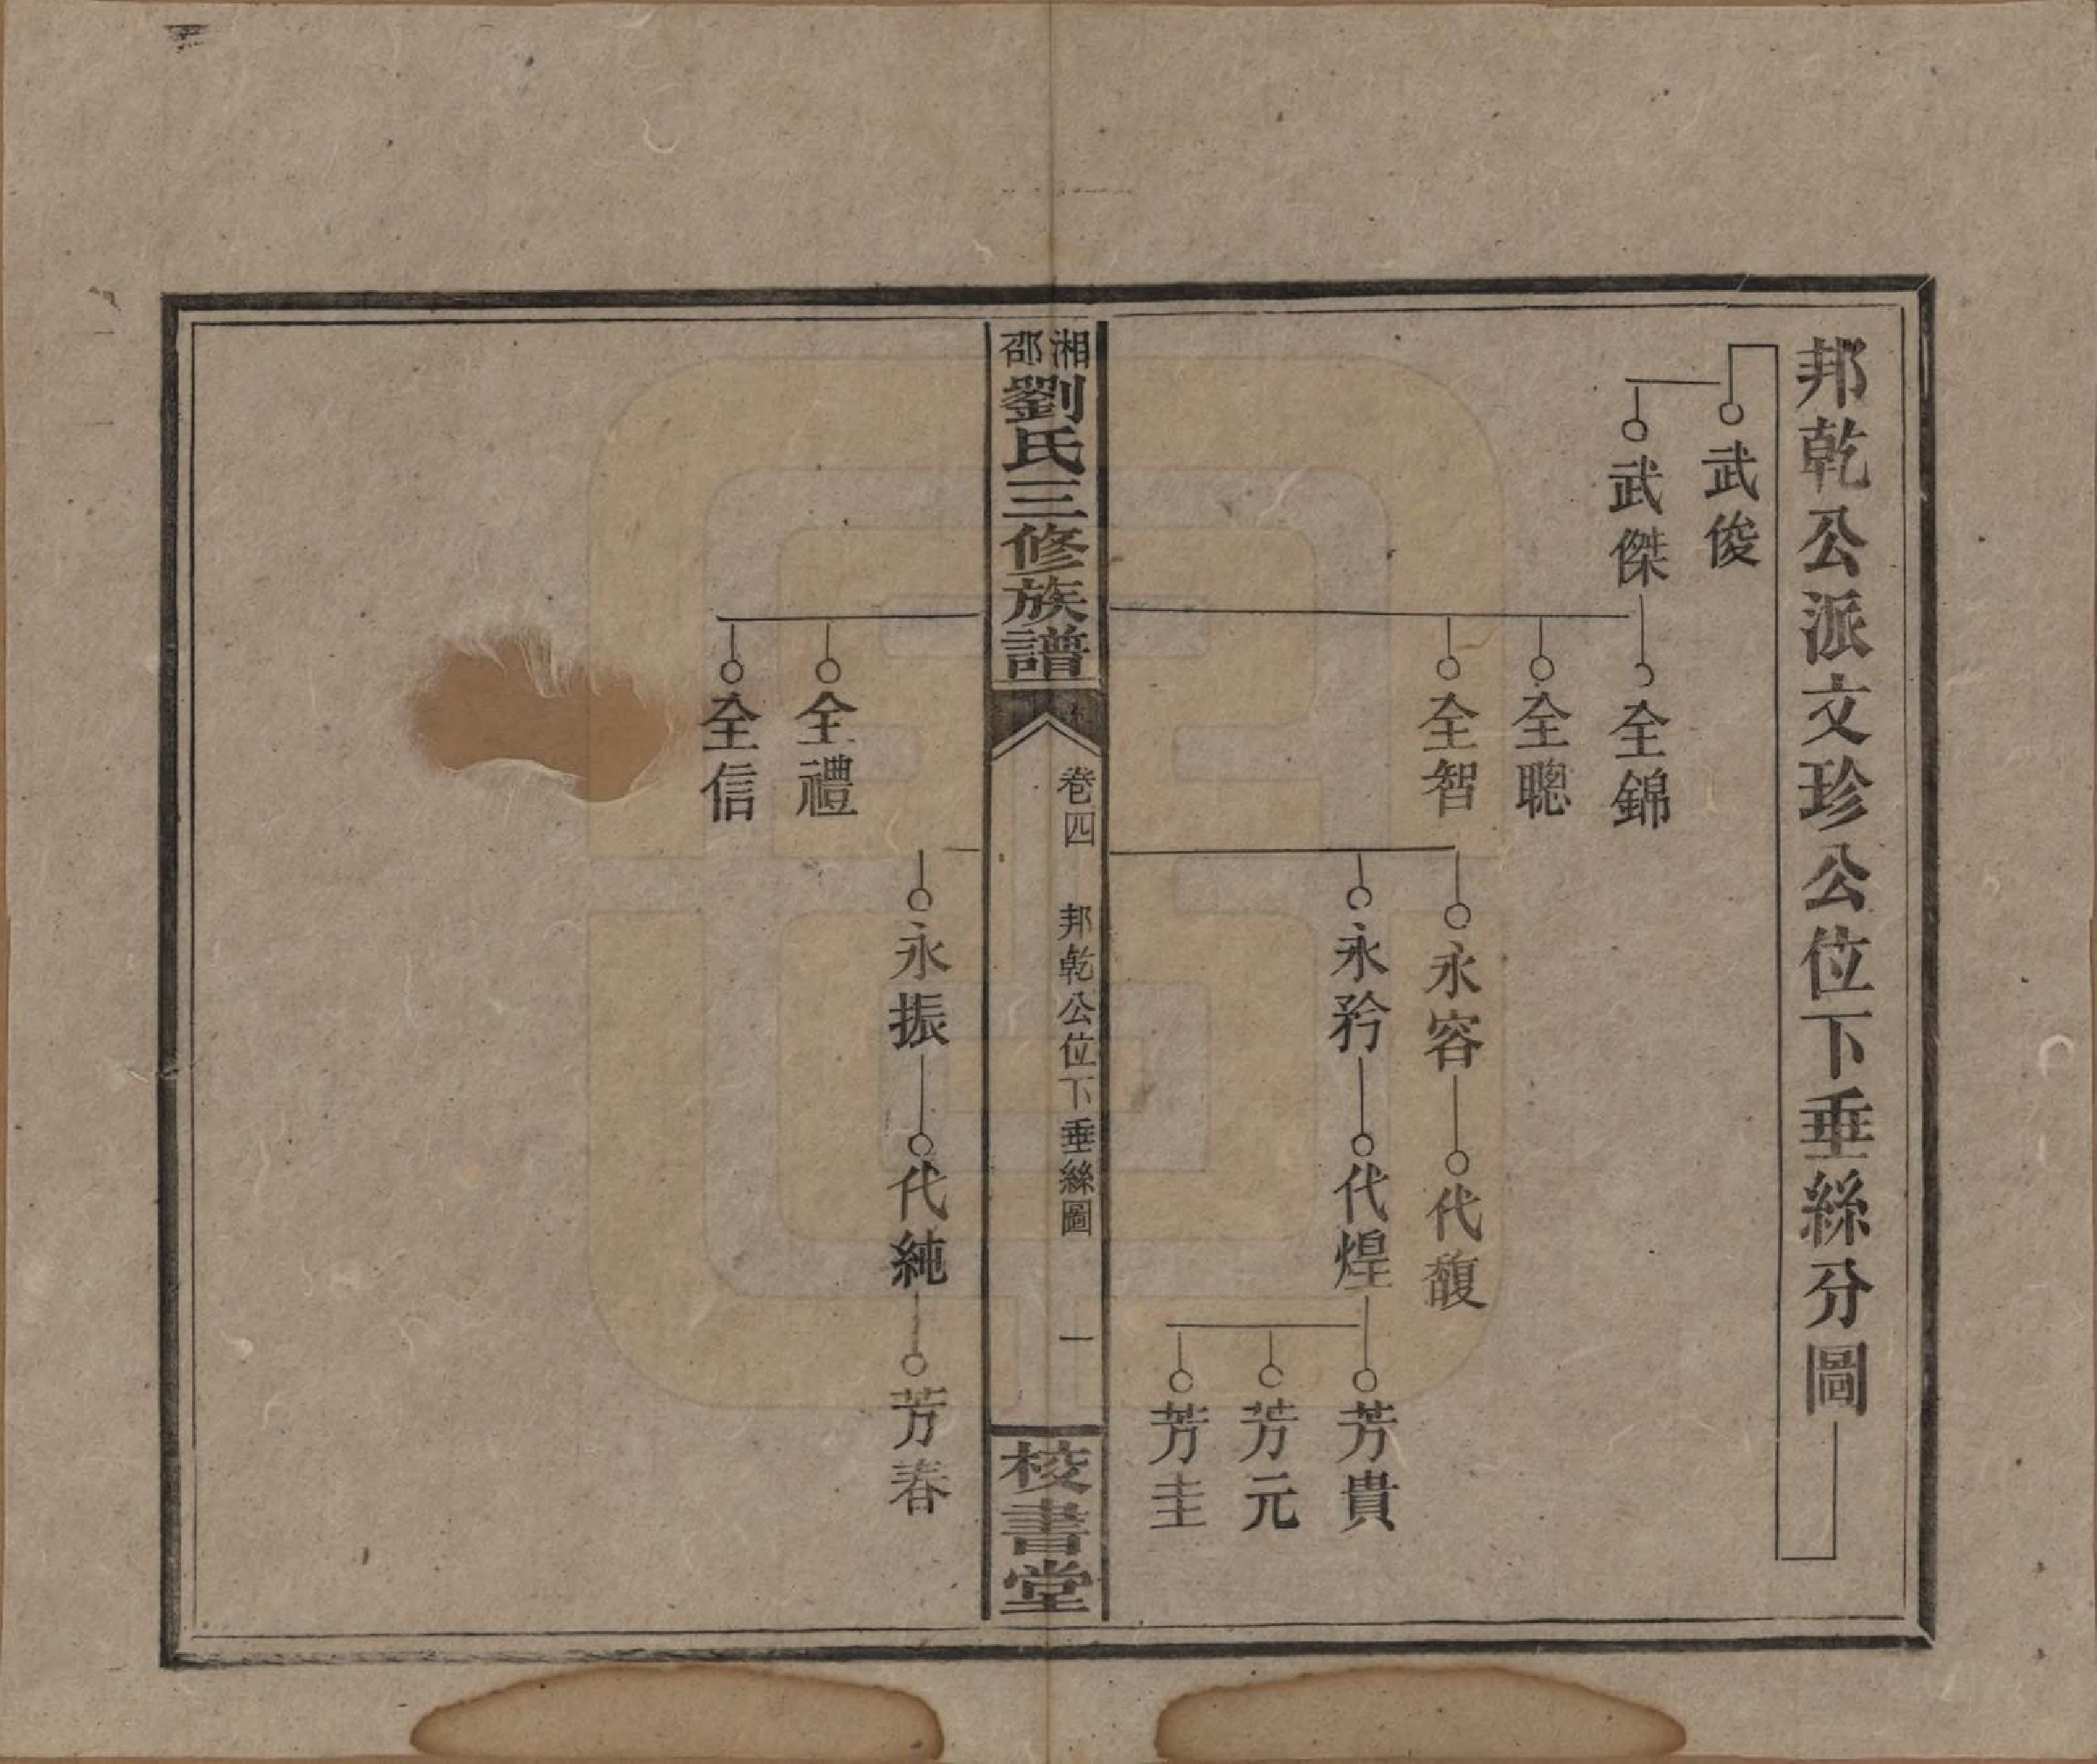 邦乾公派文珍公位下垂絲分圖
武俊
武傑
全錦
全聰
全智
永容
代馥
永矜
代煌
芳貴
芳元
芳圭
湘邵劉氏三修族譜
卷四
邦乾公位下垂絲圖
一
校書堂
全禮
全信
永振
代純
芳春